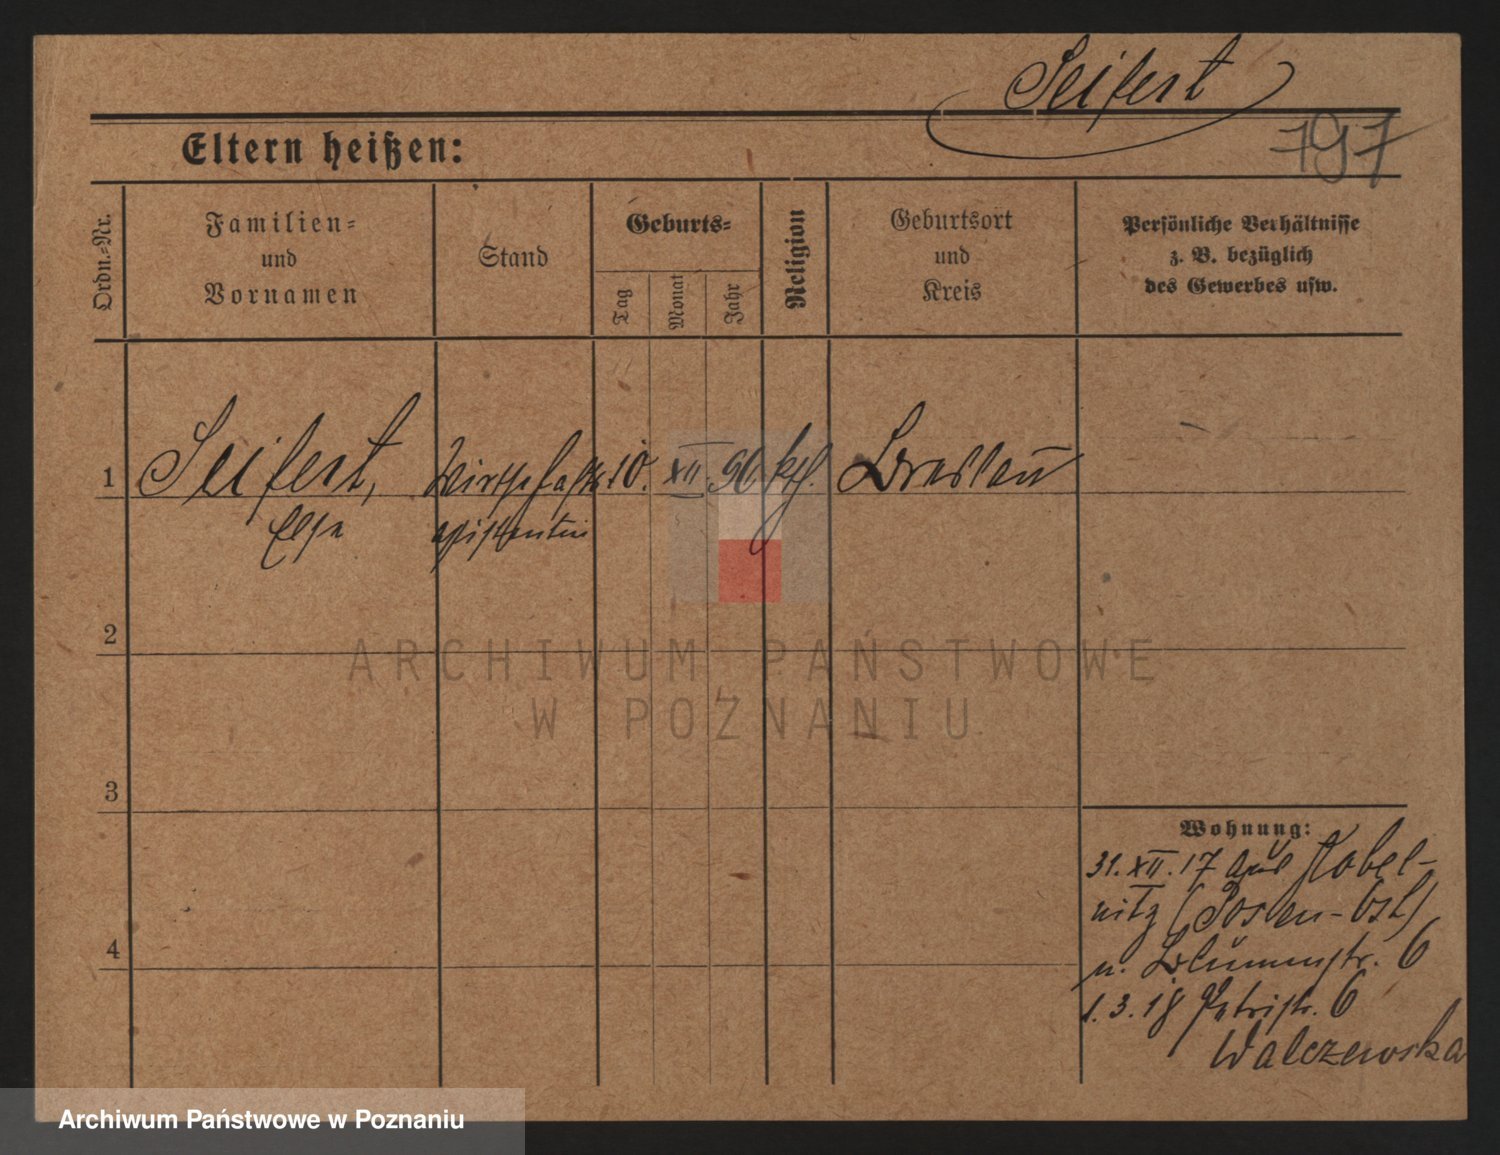 Seifert
797
Eltern heißen:
Ordn.-Nr.
Familien-
und
Vornamen
Stand
Geburts-
Tag
Monat
Jahr
Religion
Geburtsort
und
Kreis
Persönliche Verhältnisse
z. B. bezüglich
des Gewerbes usw.
1 Seifert, Wirtschafts 10. XII. 90 kth. Breslau
Elsa assistentin
2
3
4
Wohnung:
31. XII. 17 aus Kobel-
nitz (Posen-Ost)
n. Blumenstr. 6
1. 3. 18 Petristr. 6
Walczewska
ARCHIWUM PAŃSTWOWE
W POZNANIU
Archiwum Państwowe w Poznaniu